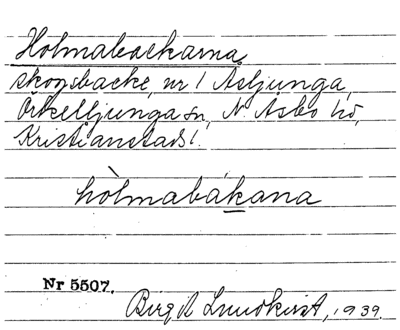 Holmabackarna,
skogsbacke, nr 1 Åsljunga,
Örkelljunga sn, N. Åsbo hd,
Kristianstads l.
hòlmabákana
Nr 5507.
Birgit Lundkvist, 1939.